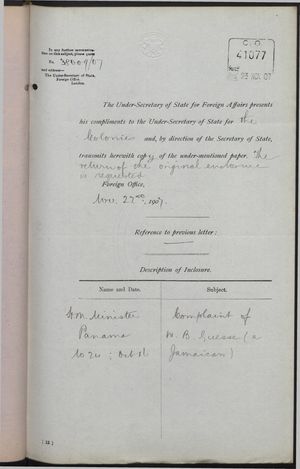 In any further communica-
tion on this subject, please quote
No. 38609/07
and address—
The Under-Secretary of State,
Foreign Office,
London.
C. O.
41077
23 NOV 07
The Under-Secretary of State for Foreign Affairs presents
his compliments to the Under-Secretary of State for the
Colonies and, by direction of the Secretary of State,
transmits herewith copy of the under-mentioned paper. The
return of the original enclosure
is requested
Foreign Office,
Nov. 22nd, 1907.
Reference to previous letter:
Description of Inclosure.
Name and Date.
Subject.
H.M. Minister
Panama
No 24 : Oct
Complaint of
W. B. (a
Jamaican)
[12]